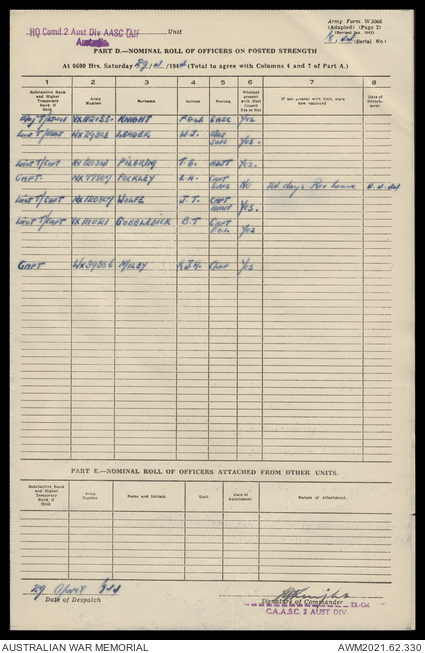 Army Form W.3008
(Adapted) (Page 2)
(Revised Jan. 1943)
HQ Comd 2 Aust Div AASC (AIF) Unit
Australia
(Serial No.)
PART D.—NOMINAL ROLL OF OFFICERS ON POSTED STRENGTH
At 0600 Hrs. Saturday 29 /194 (Total to agree with Columns 4 and 7 of Part A.)
1 2 3 4 5 6 7 8
Substantive Rank and Higher Temporary Rank if Held. Army Number. Surname Initials Posting Whether present with Unit (Insert Yes or No) If not present with Unit, state how employed Date of Detachment
KNIGHT YES
Lieut T/Capt LEADER W.J. Yes.
Lieut T/Capt PILGRIM T.G. Adjt Yes.
CAPT. Capt Sups NO 24 days Rec Leave
Lieut T/Capt WOLFE J.T. Capt Yes.
Lieut T/Capt VX111021 GOBBLEDICK B.T Capt Yes
CAPT WX39356 MILEY Yes
PART E.—NOMINAL ROLL OF OFFICERS ATTACHED FROM OTHER UNITS.
Substantive Rank and Higher Temporary Rank if Held. Army Number Name and Initials. Unit. Date of Attachment Nature of Attachment.
29 April
Date of Despatch
Signature of Commander Lt.-Col.
C.A.A.S.C. 2 AUST DIV.
AUSTRALIAN WAR MEMORIAL AWM2021.62.330